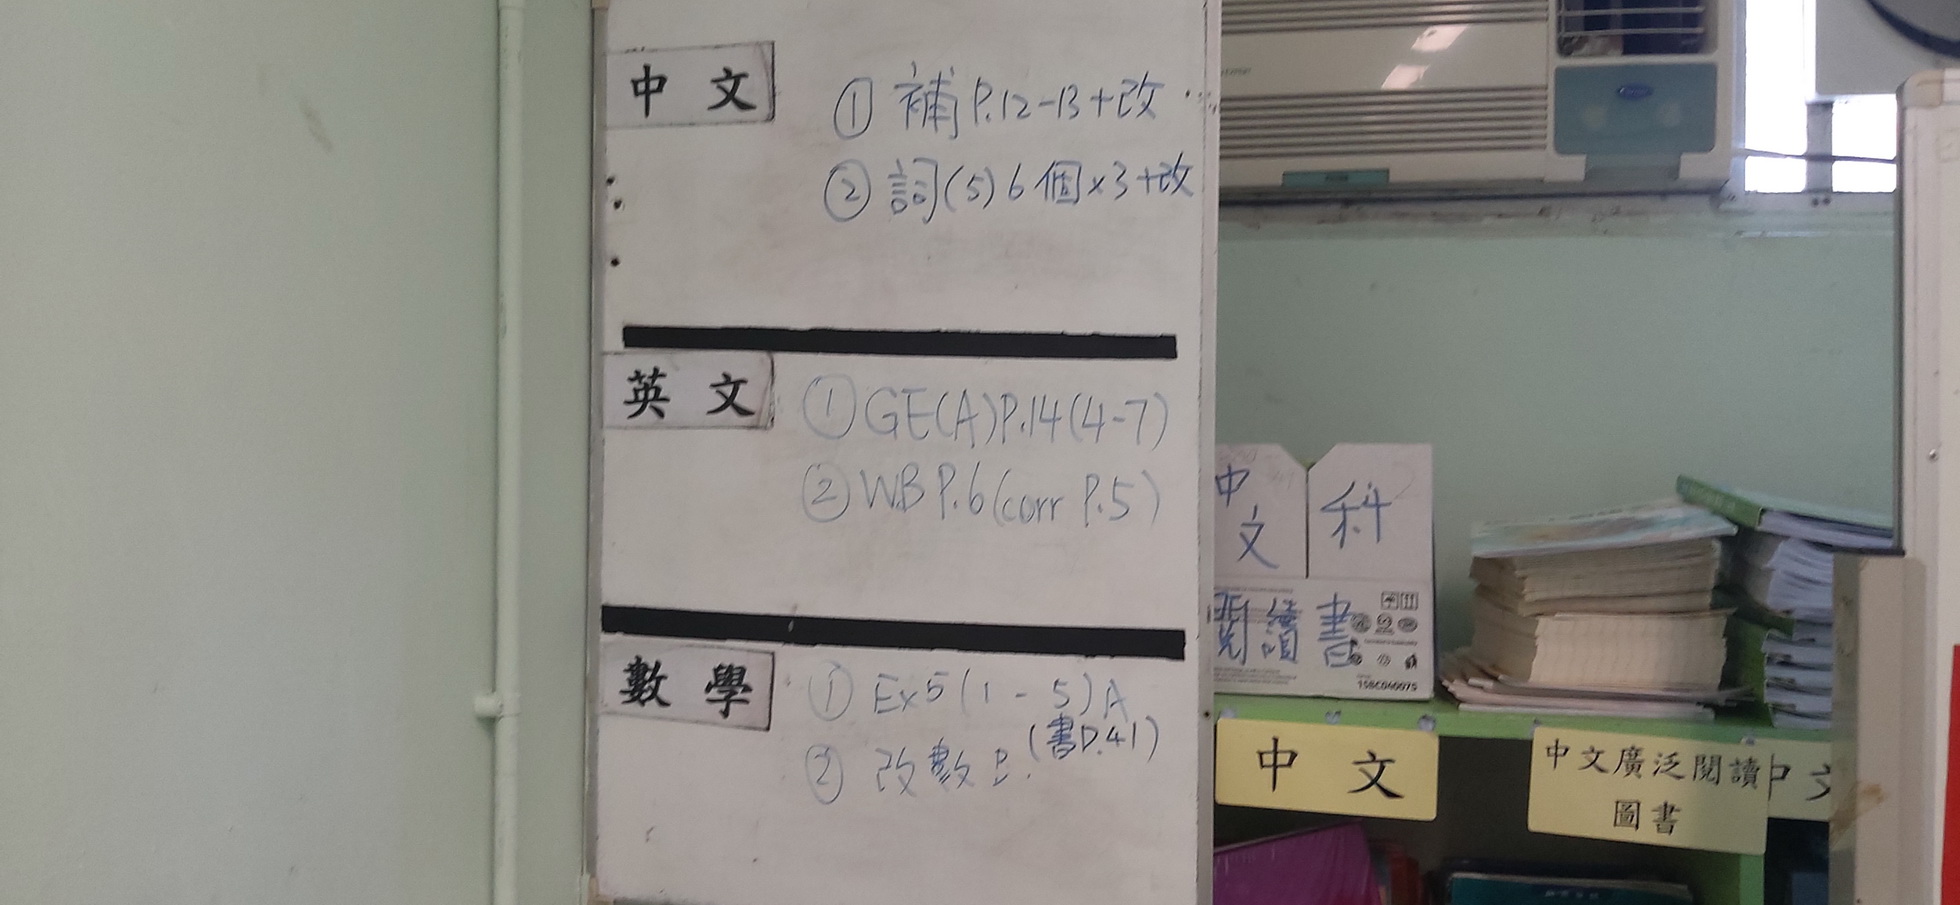 中文
① 補 P.12-13+改
② 詞(5) 6個×3+改
英文
① GE(A)P.14(4-7)
② WB P.6(corr P.5)
數學
① Ex5(1-5)A
(書P.41)
② 改數P.
中文科
閱讀書
158C040075
中文
中文廣泛閱讀
圖書
中文